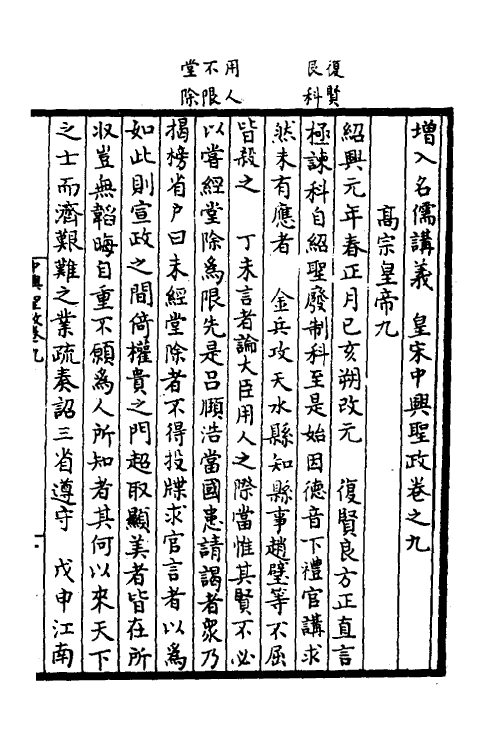 復賢
良科
用人
不限
堂除
增入名儒講義　皇宋中興聖政卷之九
高宗皇帝九
紹興元年春正月已亥朔改元　復賢良方正直言
極諫科自紹聖廢制科至是始因德音下禮官講求
然未有應者　金兵攻天水縣知縣事趙璧等不屈
皆殺之　丁未言者論大臣用人之際當惟其賢不必
以嘗經堂除為限先是呂頤浩當國患請謁者衆乃
揭榜省戶曰未經堂除者不得投牒求官言者以為
如此則宣政之間倚權貴之門超取顯美者皆在所
収豈無韜晦自重不願為人所知者其何以來天下
之士而濟艱難之業疏奏詔三省遵守　戊申江南
中興聖政卷九
一